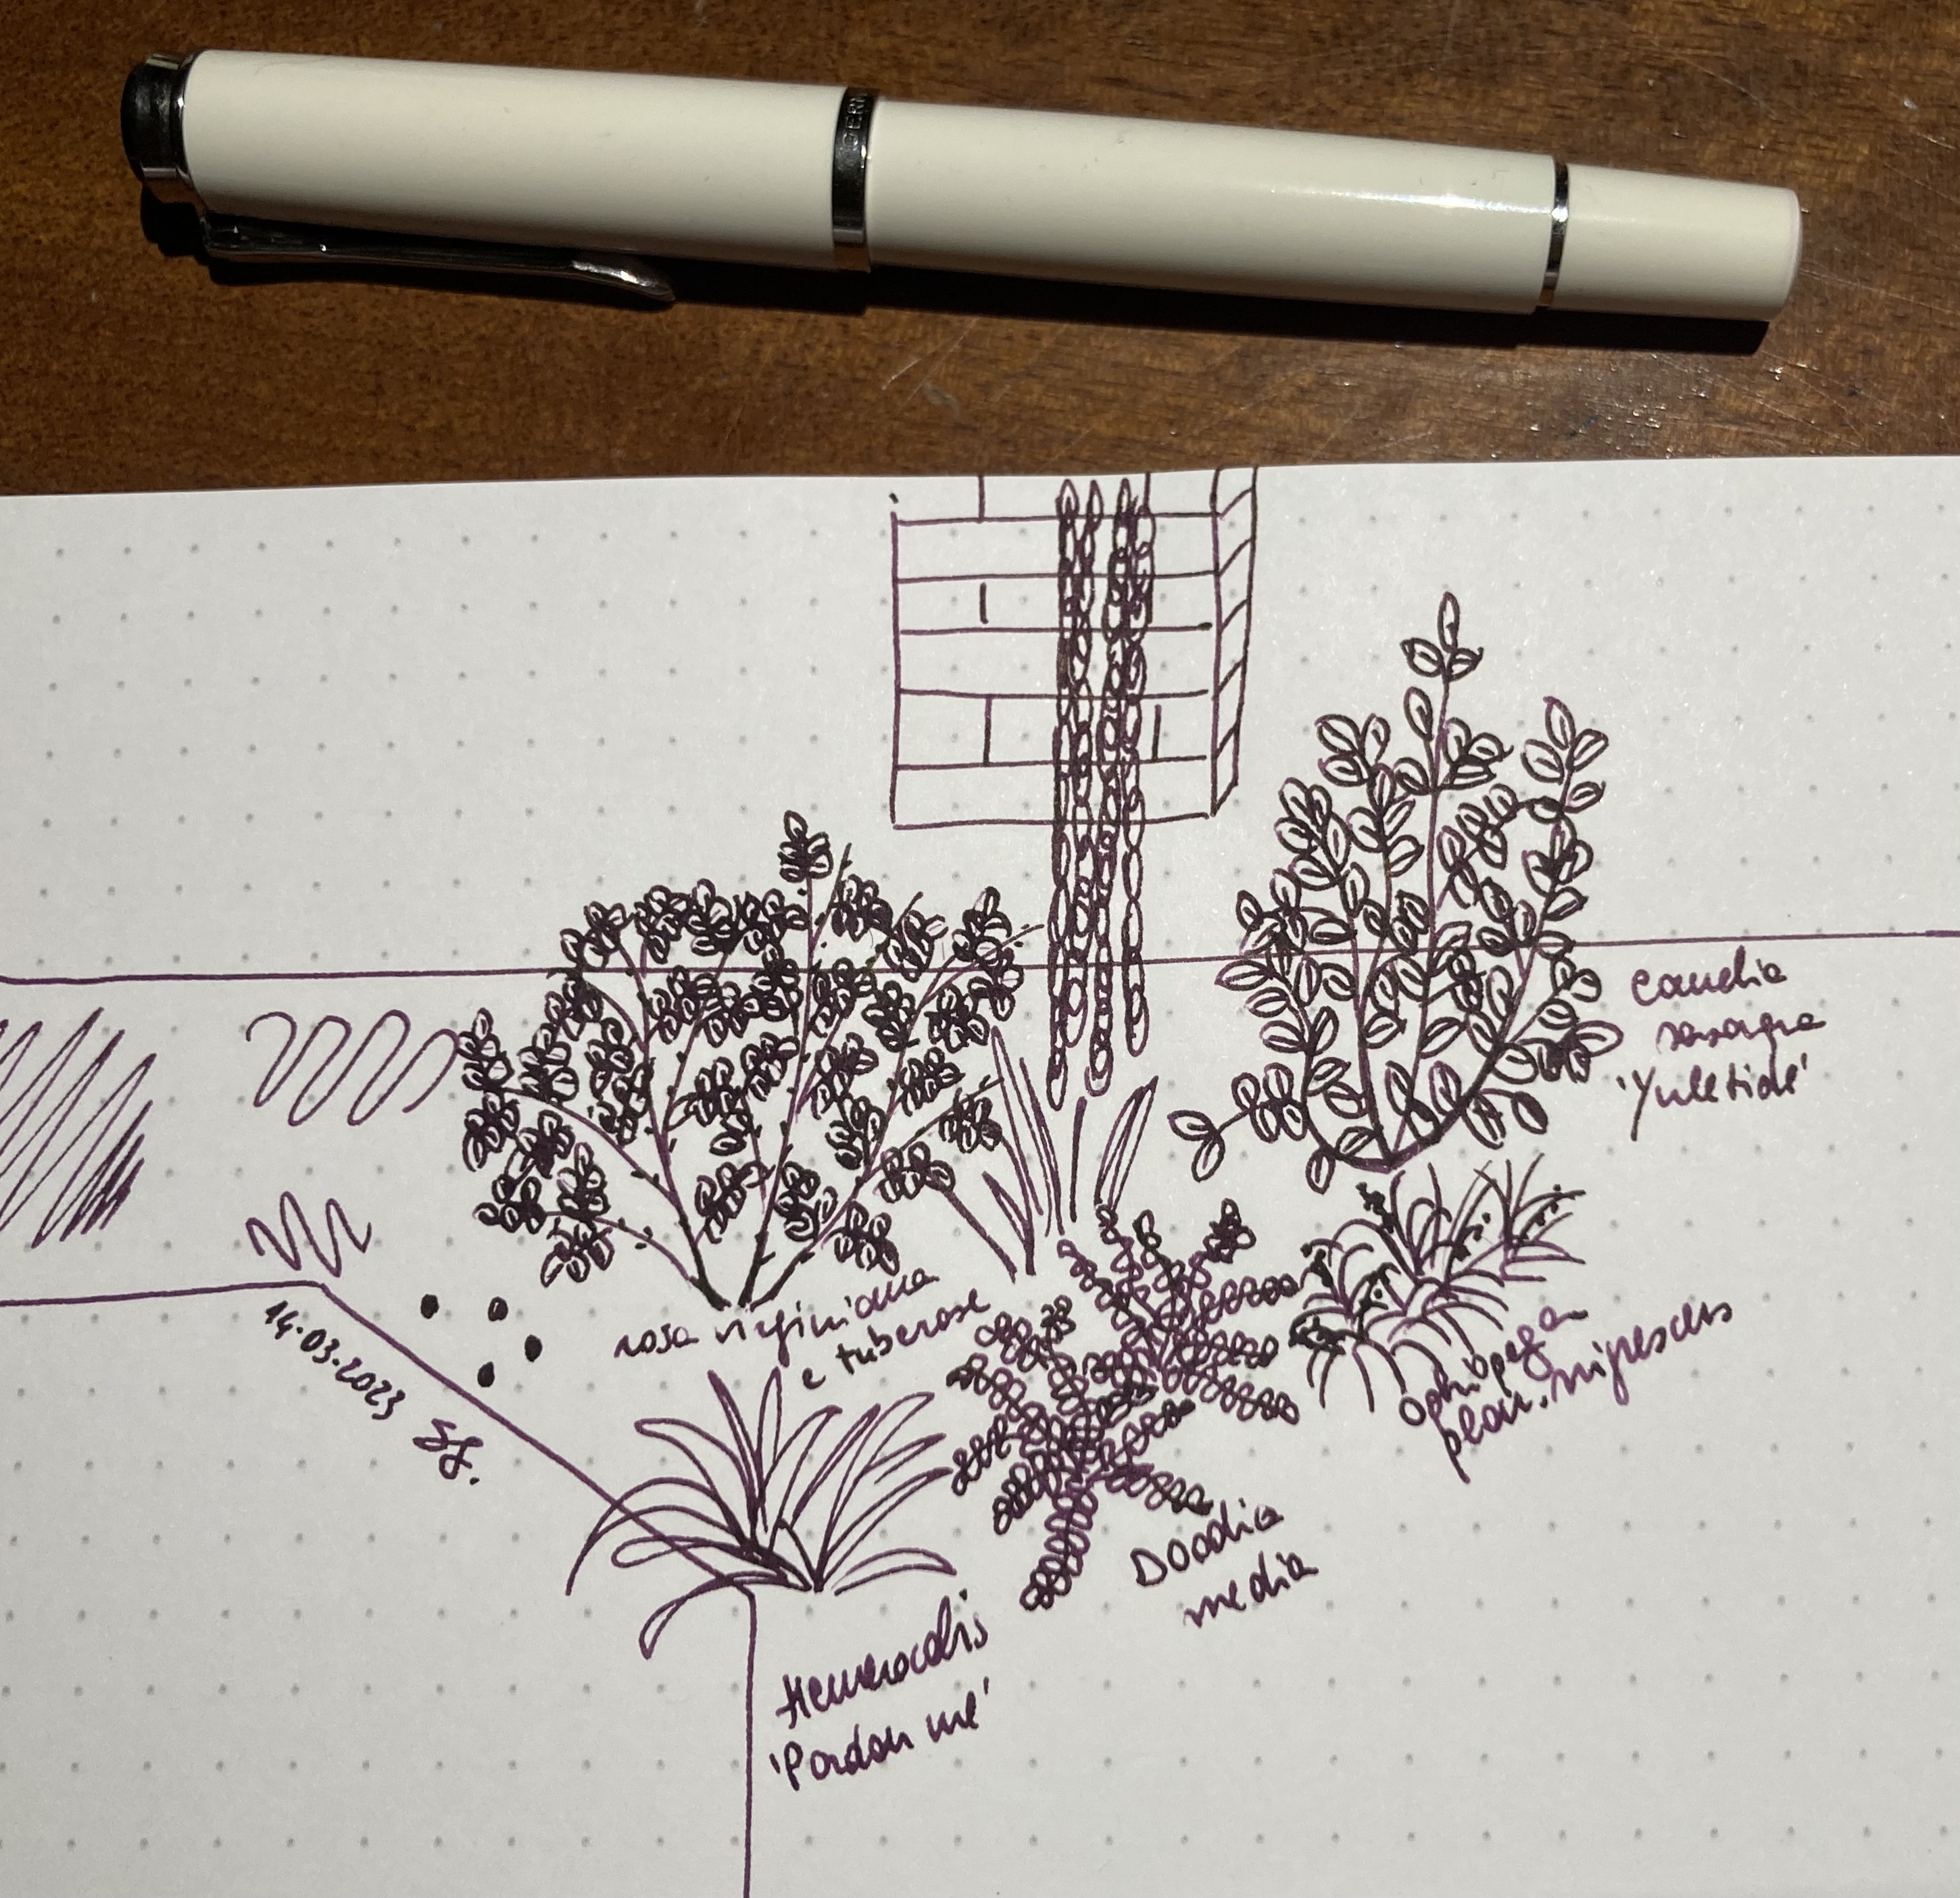 camelia
sasanqua
'Yuletide'
14.03.2023 SS.
rosa virginiana
e tuberose
Ophiopogon
plan. nigrescens
Doodia
media
Hemerocalis
'Pardon me'